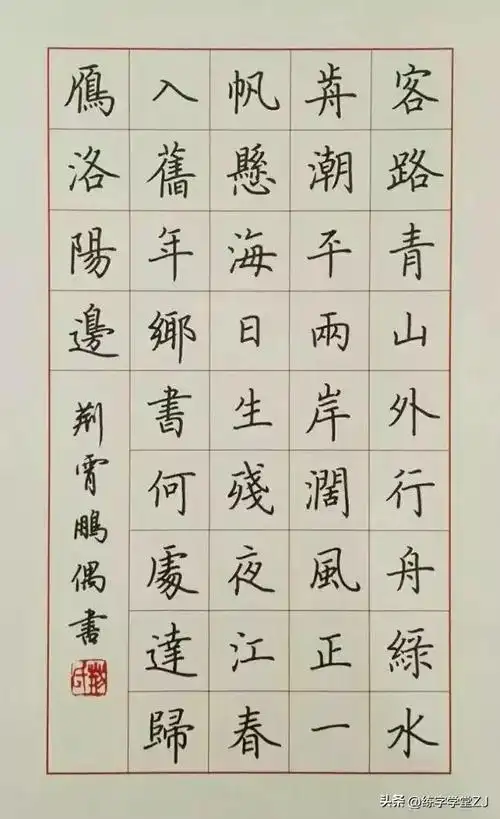 客路青山外行舟綠水
歬潮平兩岸闊風正一
帆懸海日生殘夜江春
入舊年鄉書何處達歸
鴈洛陽邊
荆霄鵬偶書
头条 @练字学堂ZJ